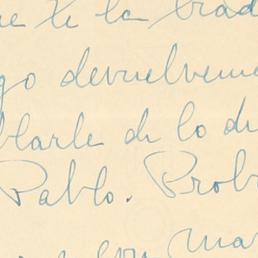 te la trad
go devuelveme
blarle de lo di
Pablo. Prob